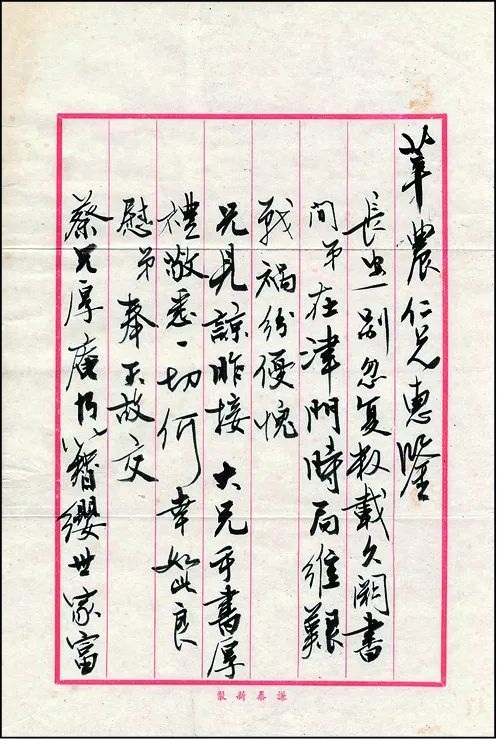 莘農仁兄惠鑒
長春一别忽复数載久闊書
问弟在津門時局維艱
戰禍紛優愧
兄見諒昨接大兄手書厚
禮敬悉一切何幸如此良
慰弟奉天故交
蔡兄厚庵乃以簪纓世家富
謙泰新製